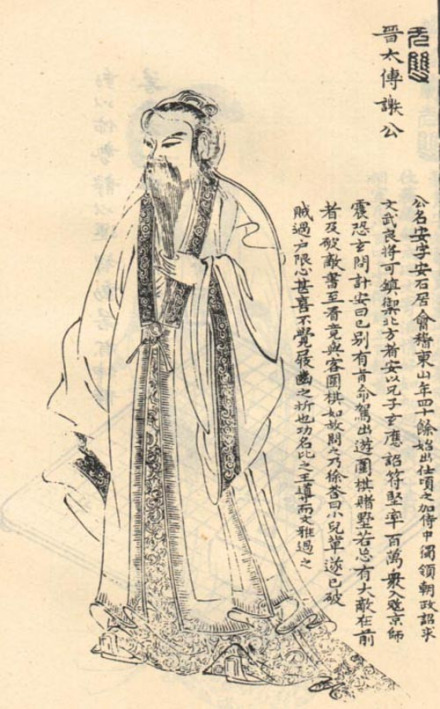 无雙
晉太傅謝公
公名安字安石居會稽東山年四十餘始出仕頃之加侍中獨領朝政詔求
文武良將可鎮禦北方者安以兄子玄應詔符堅率百萬衆入寇京師
震恐玄問計安曰已别有旨命駕出遊圍棋賭墅若忘有大敵在前
者及破敵書至看竟與客圍棋如故問之乃徐荅曰小兒輩遂已破
賊過户限心甚喜不覺屐齒之折也功名比之王導而文雅過之